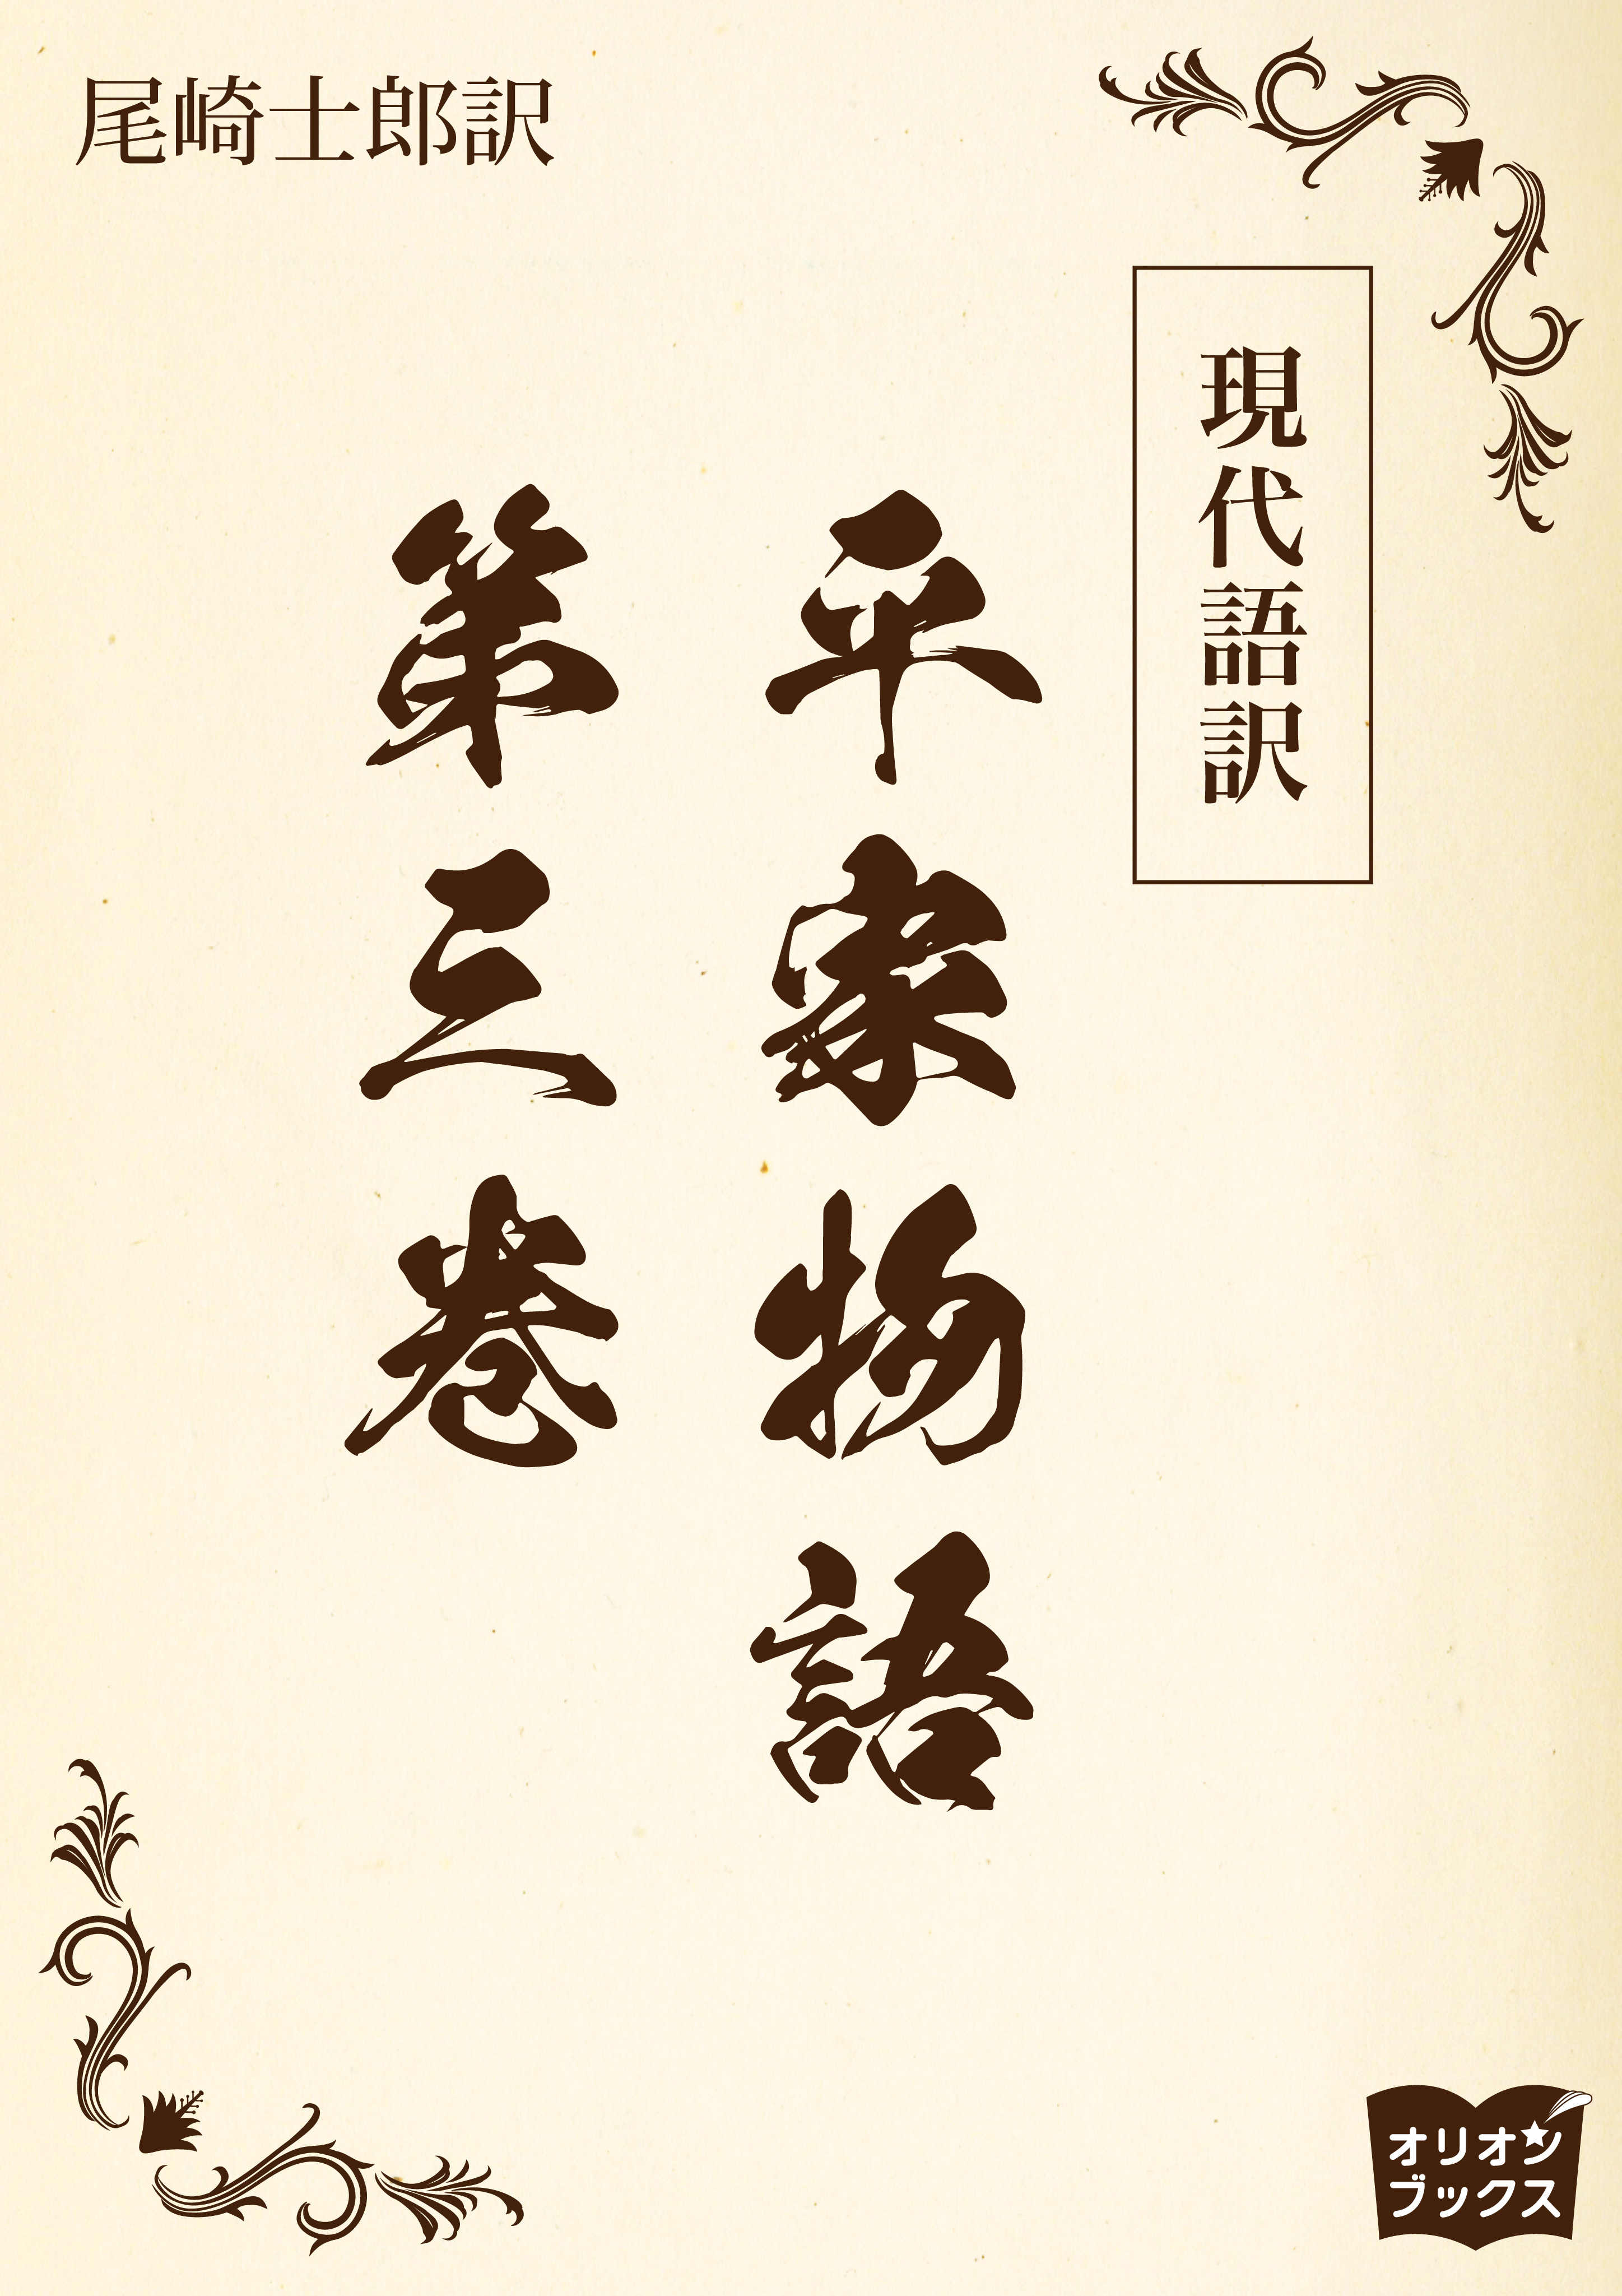 尾崎士郎訳
現代語訳
平家物語
第三巻
オリオン
ブックス